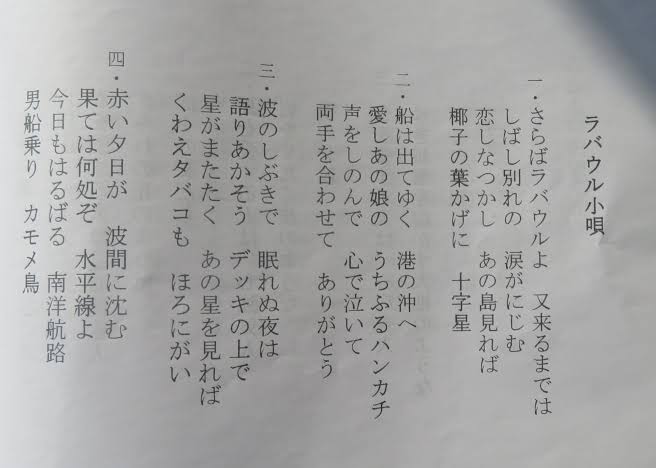 ラバウル小唄
一・さらばラバウルよ 又来るまでは
しばし別れの 涙がにじむ
恋しなつかし あの島見れば
椰子の葉かげに 十字星
二・船は出てゆく 港の沖へ
愛しあの娘の うちふるハンカチ
声をしのんで 心で泣いて
両手を合わせて ありがとう
三・波のしぶきで 眠れぬ夜は
語りあかそう デッキの上で
星がまたたく あの星を見れば
くわえタバコも ほろにがい
四・赤い夕日が 波間に沈む
果ては何処ぞ 水平線よ
今日もはるばる 南洋航路
男船乗り カモメ鳥